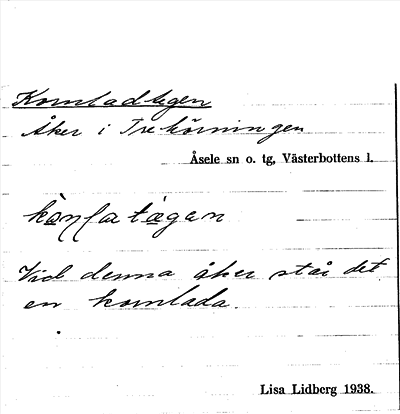 Kornladtegen
Åker i Trehörningen
Åsele sn o. tg, Västerbottens l.
Vid denna åker står det
en kornlada.
Lisa Lidberg 1938.